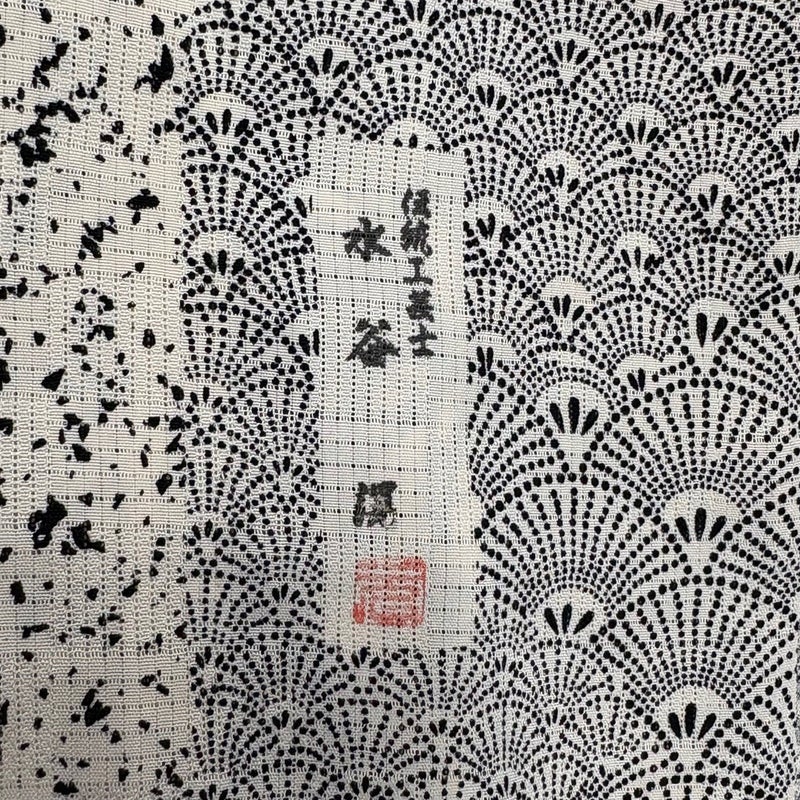 伝統工芸士
水谷